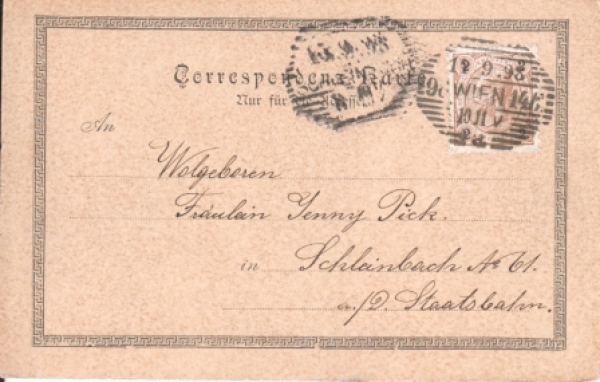 Correspondenz-Karte
Nur für die Adresse
12.9.98
WIEN
10 II V
An
Wolgeboren
Fräulein Jenny Pick.
in Schleinbach No 61.
a./D. Staatsbahn.